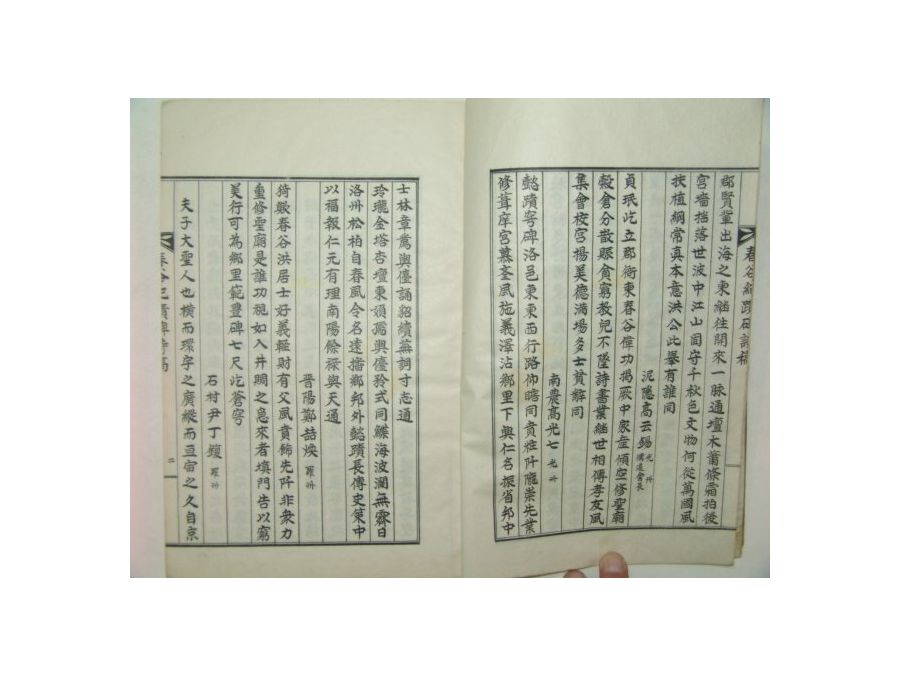 春谷紀蹟碑詩稿
郡賢輩出海之東繼往開來一脉通壇木蕭條霜拍後
宮墻拙落世波中江山固守千秋色文物何從萬國風
扶植綱常真本意洪公此擧有誰同
泥隱高云錫 光州 儒道會長
貞珉屹立郡衙東春谷偉功揭厥中家産傾空修聖廟
穀倉分散賑貪窮敎兒不墜詩書業繼世相傳孝友風
集會校宮揚美德滿場多士賛辭同
南農高光七 光州
懿蹟寄碑洛邑東東西行路仰瞻同賁粧阡隴崇先業
修葺庠宮慕聖風施義澤沾鄕里下興仁名振省邦中
士林章薦輿儓誦貂續蕪詞寸志通
玲瓏金塔杏壇東頌孺輿儓矜式同鰈海波瀾無霽日
洛州松柏自春風令名遠播鄕邦外懿蹟長傳史策中
以福報仁元有理南陽餘祿與天通
晋陽鄭喆煥 羅州
猗歟春谷洪居士好義輕財有父風賁飾先阡非衆力
重修聖廟是誰功視如入井賙之急來者塡門告以窮
美行可為鄕里範豊碑七尺屹蒼穹
石村尹丁鎭 羅州
夫子大聖人也橫而環宇之廣縱而亘宙之久自京
二